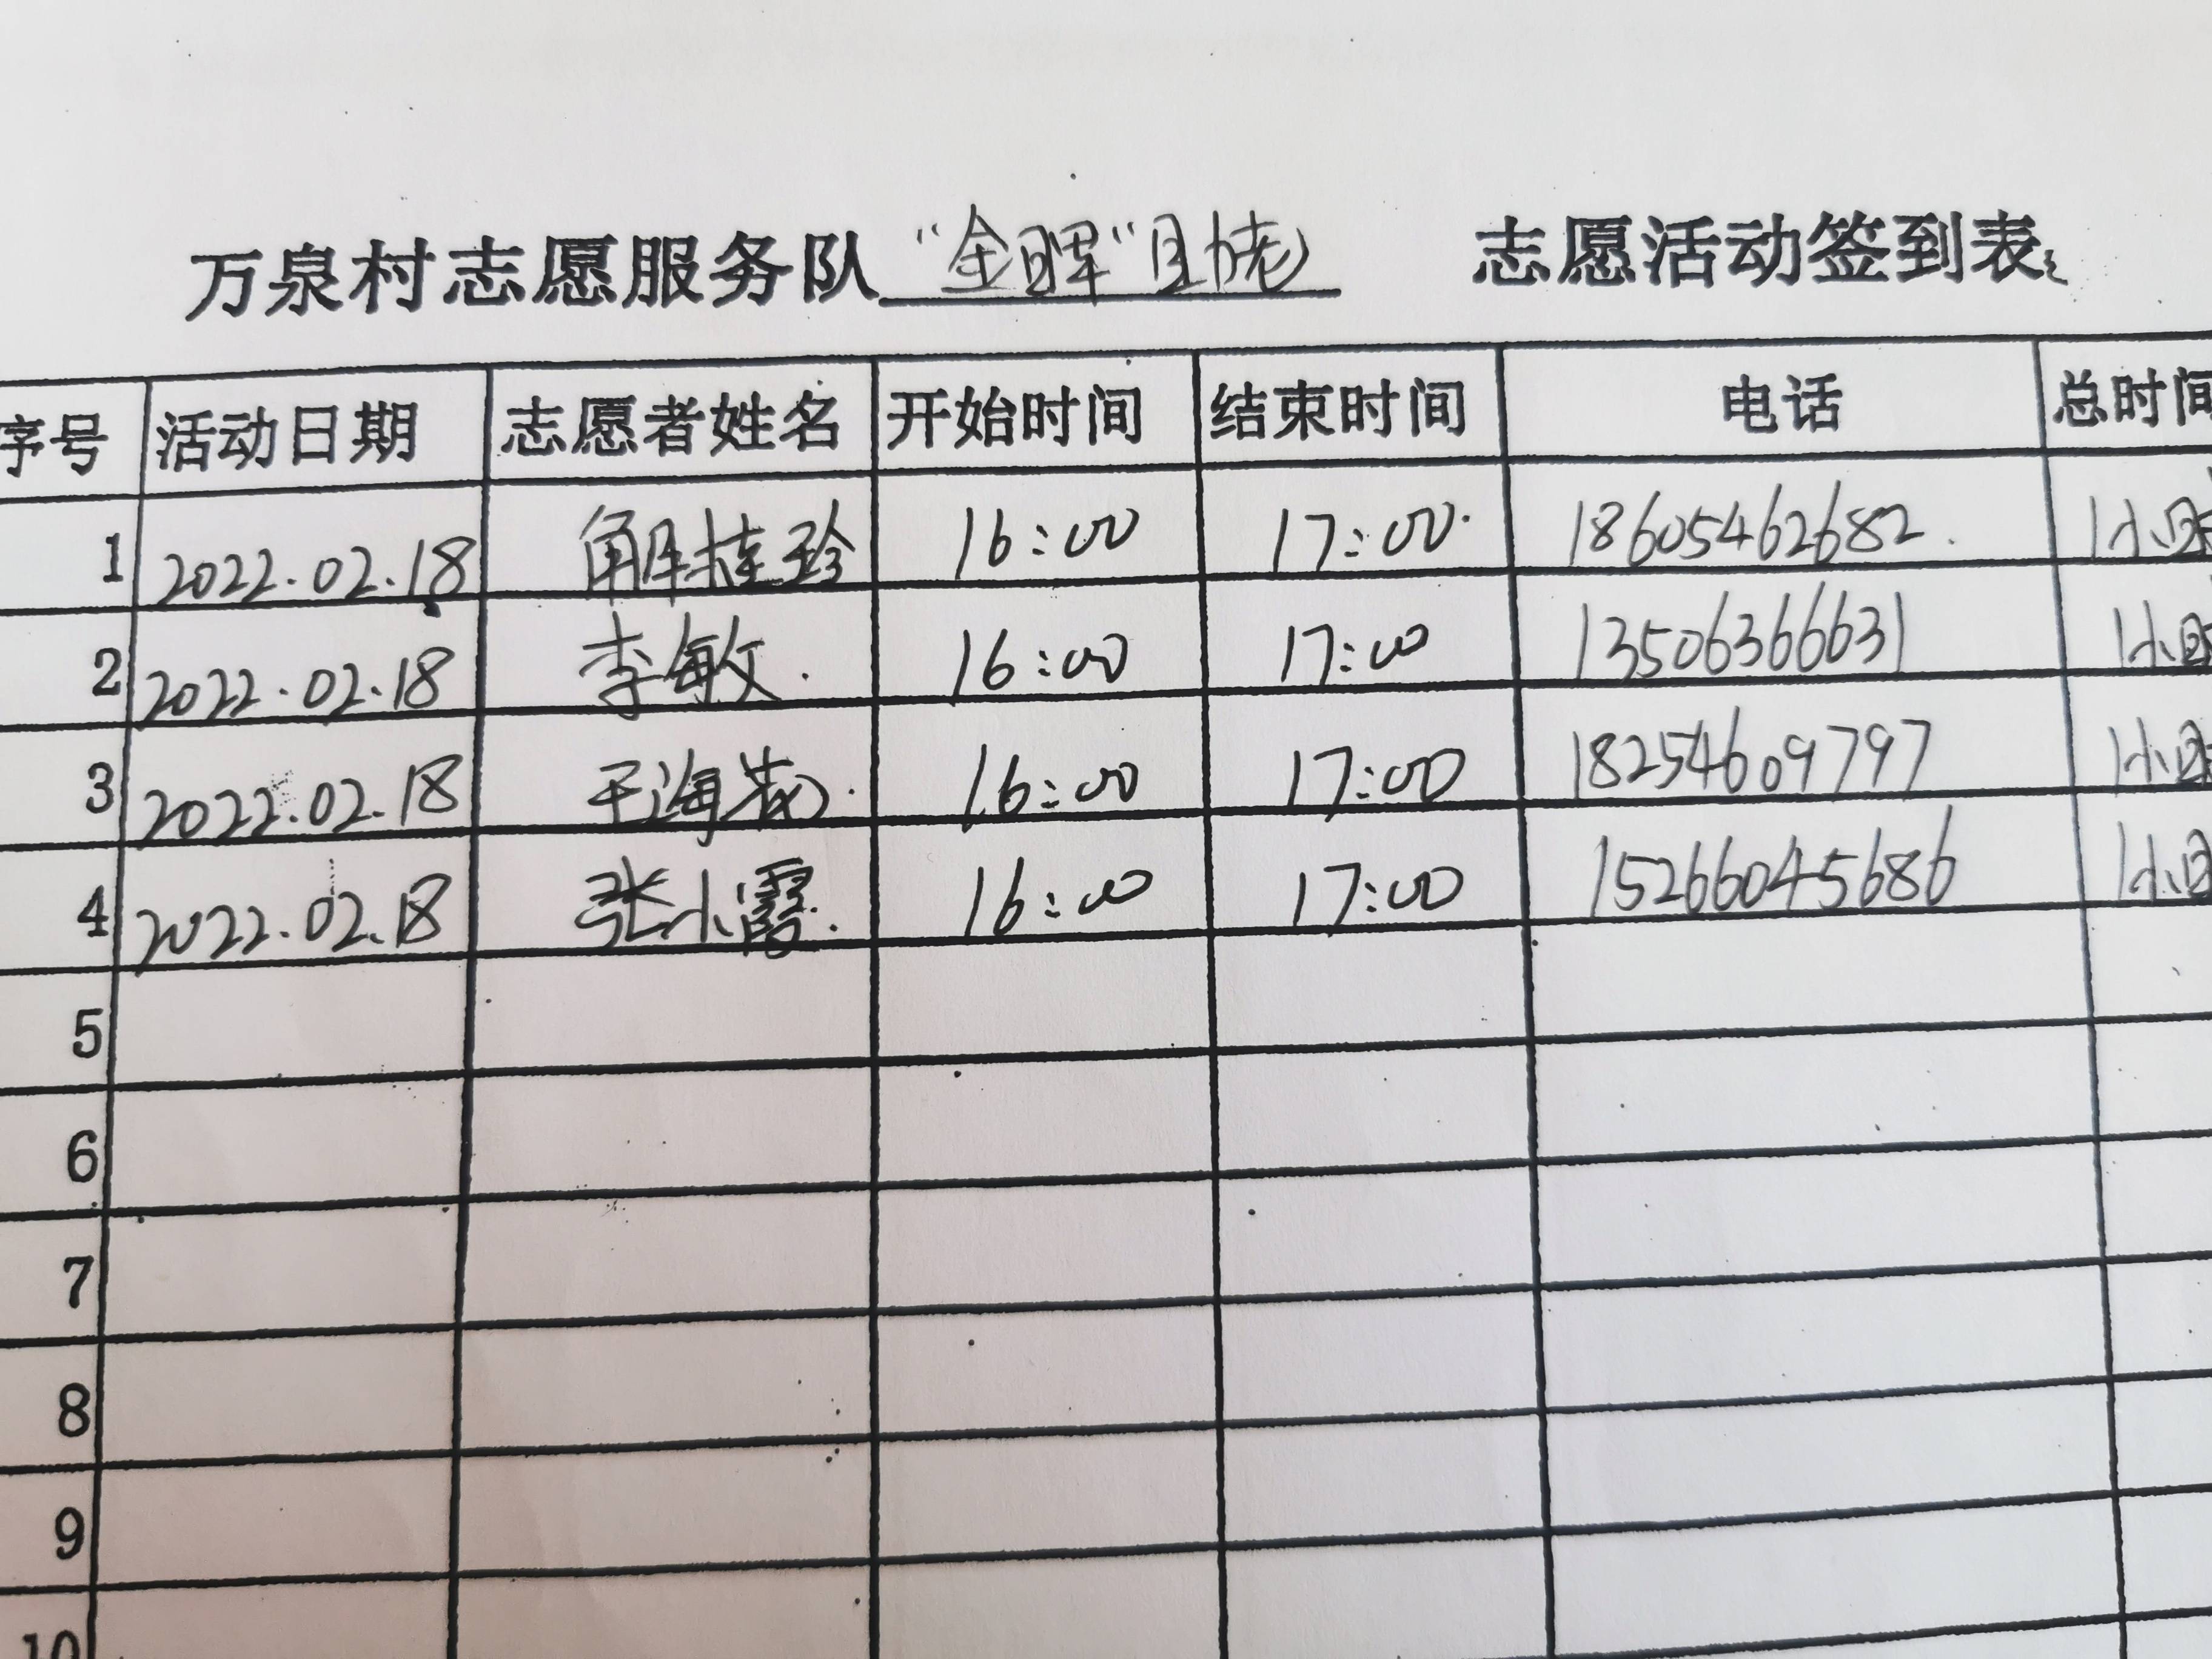 万泉村志愿服务队“金晖”助老 志愿活动签到表
序号 活动日期 志愿者姓名 开始时间 结束时间 电话 总时间
1 2022.02.18 解桂珍 16:00 17:00 18605462682 1小时
2 2022.02.18 李敏 16:00 17:00 13506366631 1小时
3 2022.02.18 王海燕 16:00 17:00 18254609797 1小时
4 2022.02.18 张小霞 16:00 17:00 15266045686 1小时
5
6
7
8
9
10